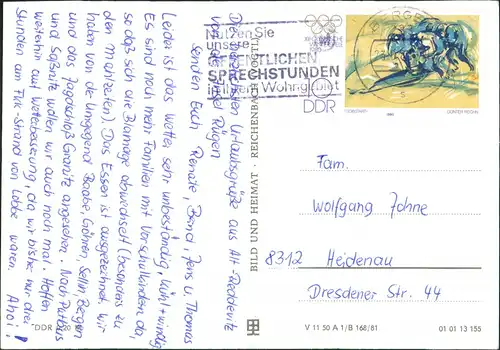 Die herzlichsten Urlaubsgrüße aus Alt-Reddevitz
von der Insel Rügen
senden Euch Renate, Bernd, Jens u. Thomas
Leider ist das Wetter sehr unbeständig, kühl + windig.
Es sind noch mehr Familien mit Vorschulkindern da,
so daß sich die Blamage abwechselt (besonders zu
den Mahlzeiten). Das Essen ist ausgezeichnet. Wir
haben von der Umgegend Baabe, Göhren, Sellin, Bergen
und das Jagdschloß Granitz angesehen. Nach Putbus
und Saßnitz wollen wir auch noch mal. Hoffen
weiterhin auf Wetterbesserung, da wir bisher nur drei
Stunden am FKK-Strand von Lobbe waren.
Ahoi!
Nutzen Sie
unsere
ÖFFENTLICHEN
SPRECHSTUNDEN
in Ihrem Wohngebiet
DDR
BILD UND HEIMAT · REICHENBACH (VOGTL)
Fam.
Wolfgang Johne
8312 Heidenau
Dresdener Str. 44
V 11 50 A 1/B 168/81
01 01 13 155